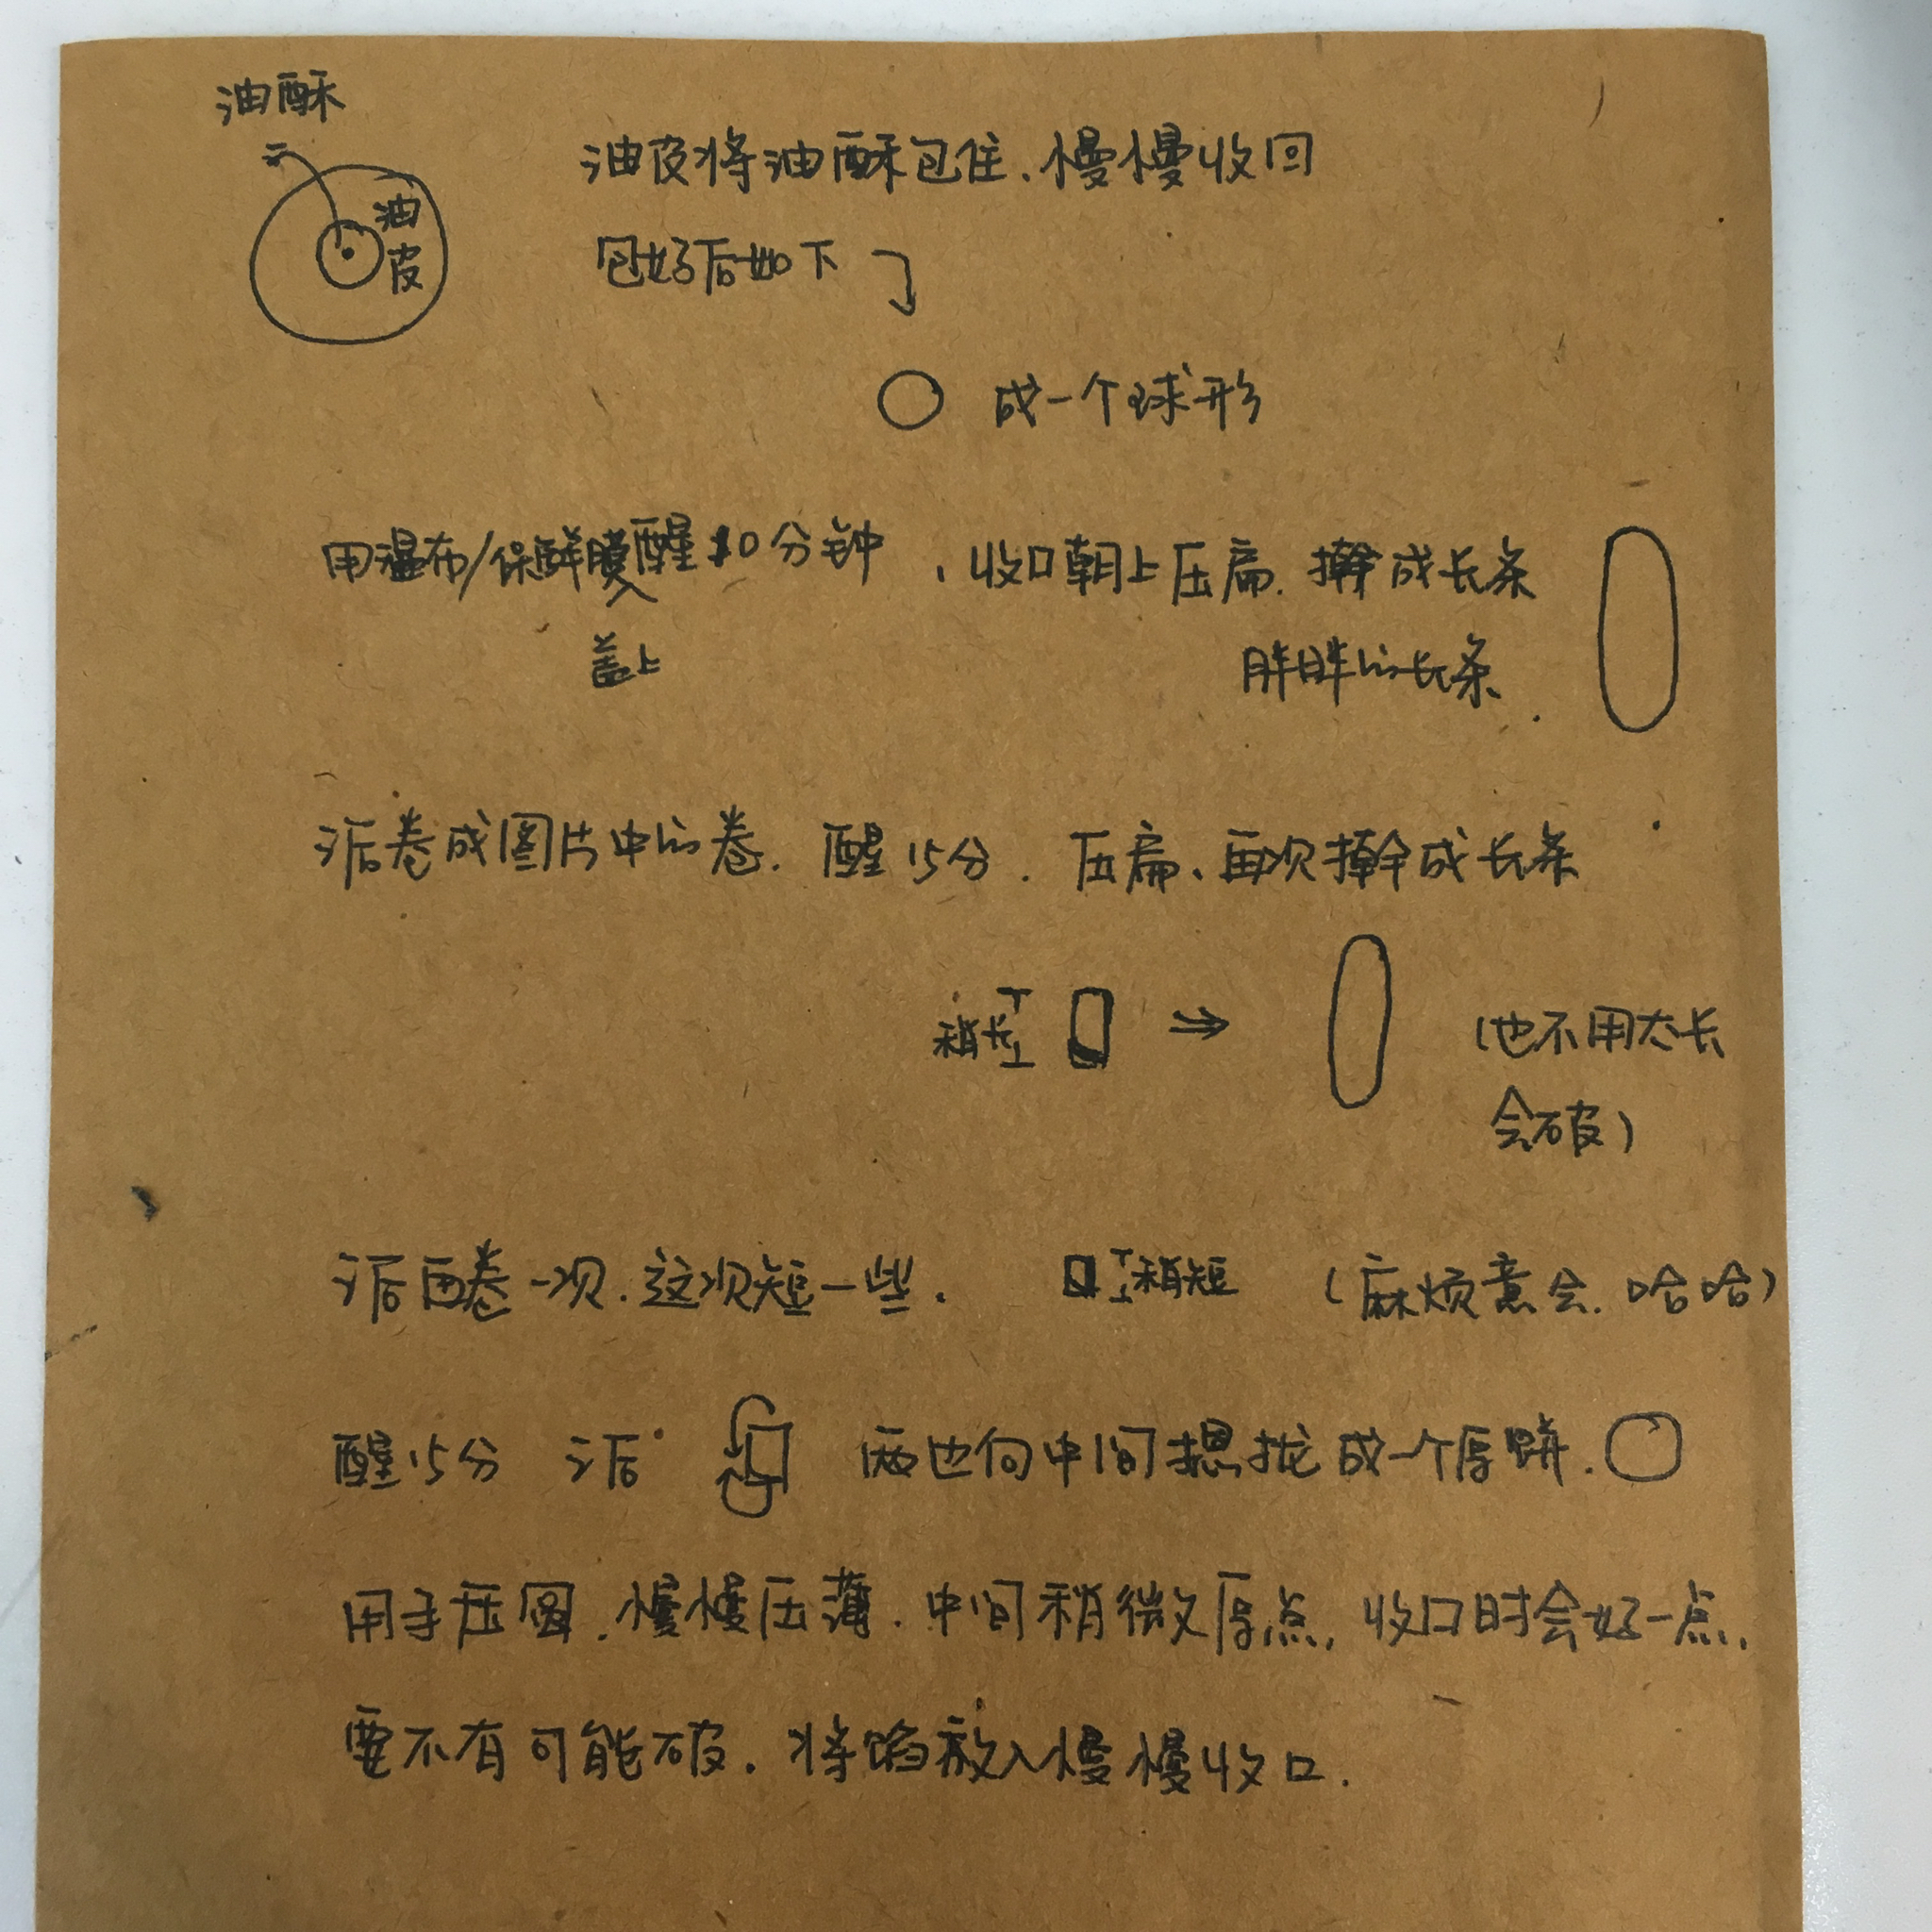 油酥
油皮
油皮将油酥包住.慢慢收回
包好后如下
成一个球形
用湿布/保鲜膜醒10分钟,收口朝上压扁.擀成长条
盖上
胖胖的长条.
然后卷成图片中的卷.醒15分.压扁、再次擀成长条
稍长
(也不用太长
会破)
然后再卷一次.这次短一些.
稍短
(麻烦意会.哈哈)
醒15分 然后 两边向中间 拢成一个厚饼.
用手压圆.慢慢压薄.中间稍微厚点,收口时会好一点,
要不有可能破.将馅放入慢慢收口.